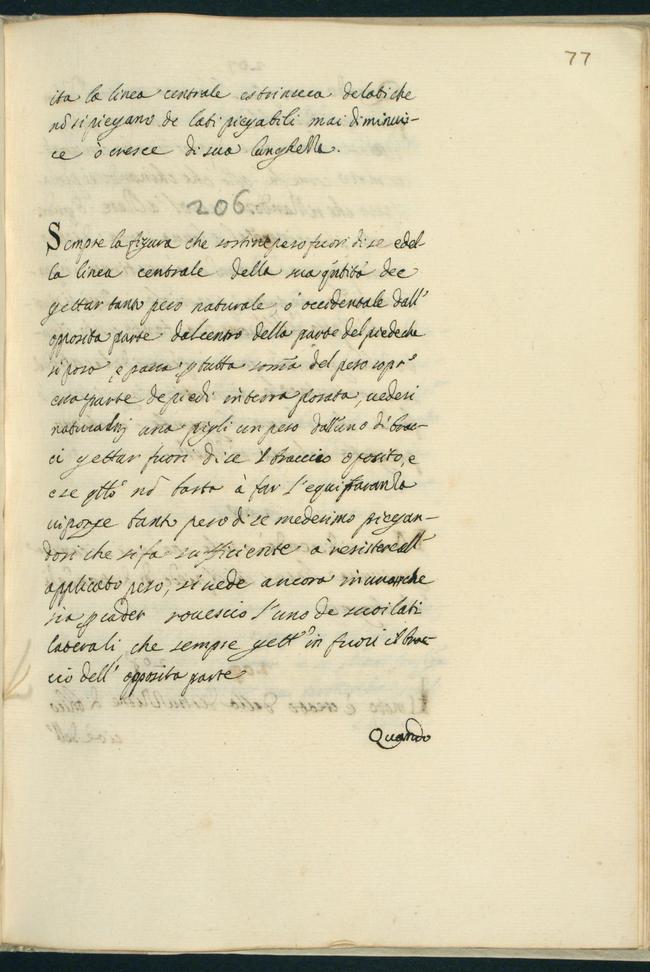 77
ita la linea centrale estrinseca de lati che
nõ si piegano de lati piegabili mai diminuis-
ce ò cresce di sua lunghezza.
206
Sempre la figura che sostine peso fuori di se e del
la linea centrale della sua q̃ntità dee
gettar tanto peso naturale, ò accidentale dall'
opposita parte dal centro della parte del piede che
si posa, e passa p tutta som̃a del peso sopr'
essa parte de piedi in terra posata, vedesi
naturalm̃ uno pigli un peso dall'uno di brac-
ci gettar fuori di se l braccio oposito, e
e se q̃sto nõ basta à far l'equiparanza
vi porge tanto peso di se medesimo piegan-
dosi che si fa sufficiente à resistere all'
applicato peso, si vede ancora in uno che
sia p cader rovescio l'uno de suoi lati
laterali, che sempre gett' in fuori il brac-
cio dell' opposita parte
Quando